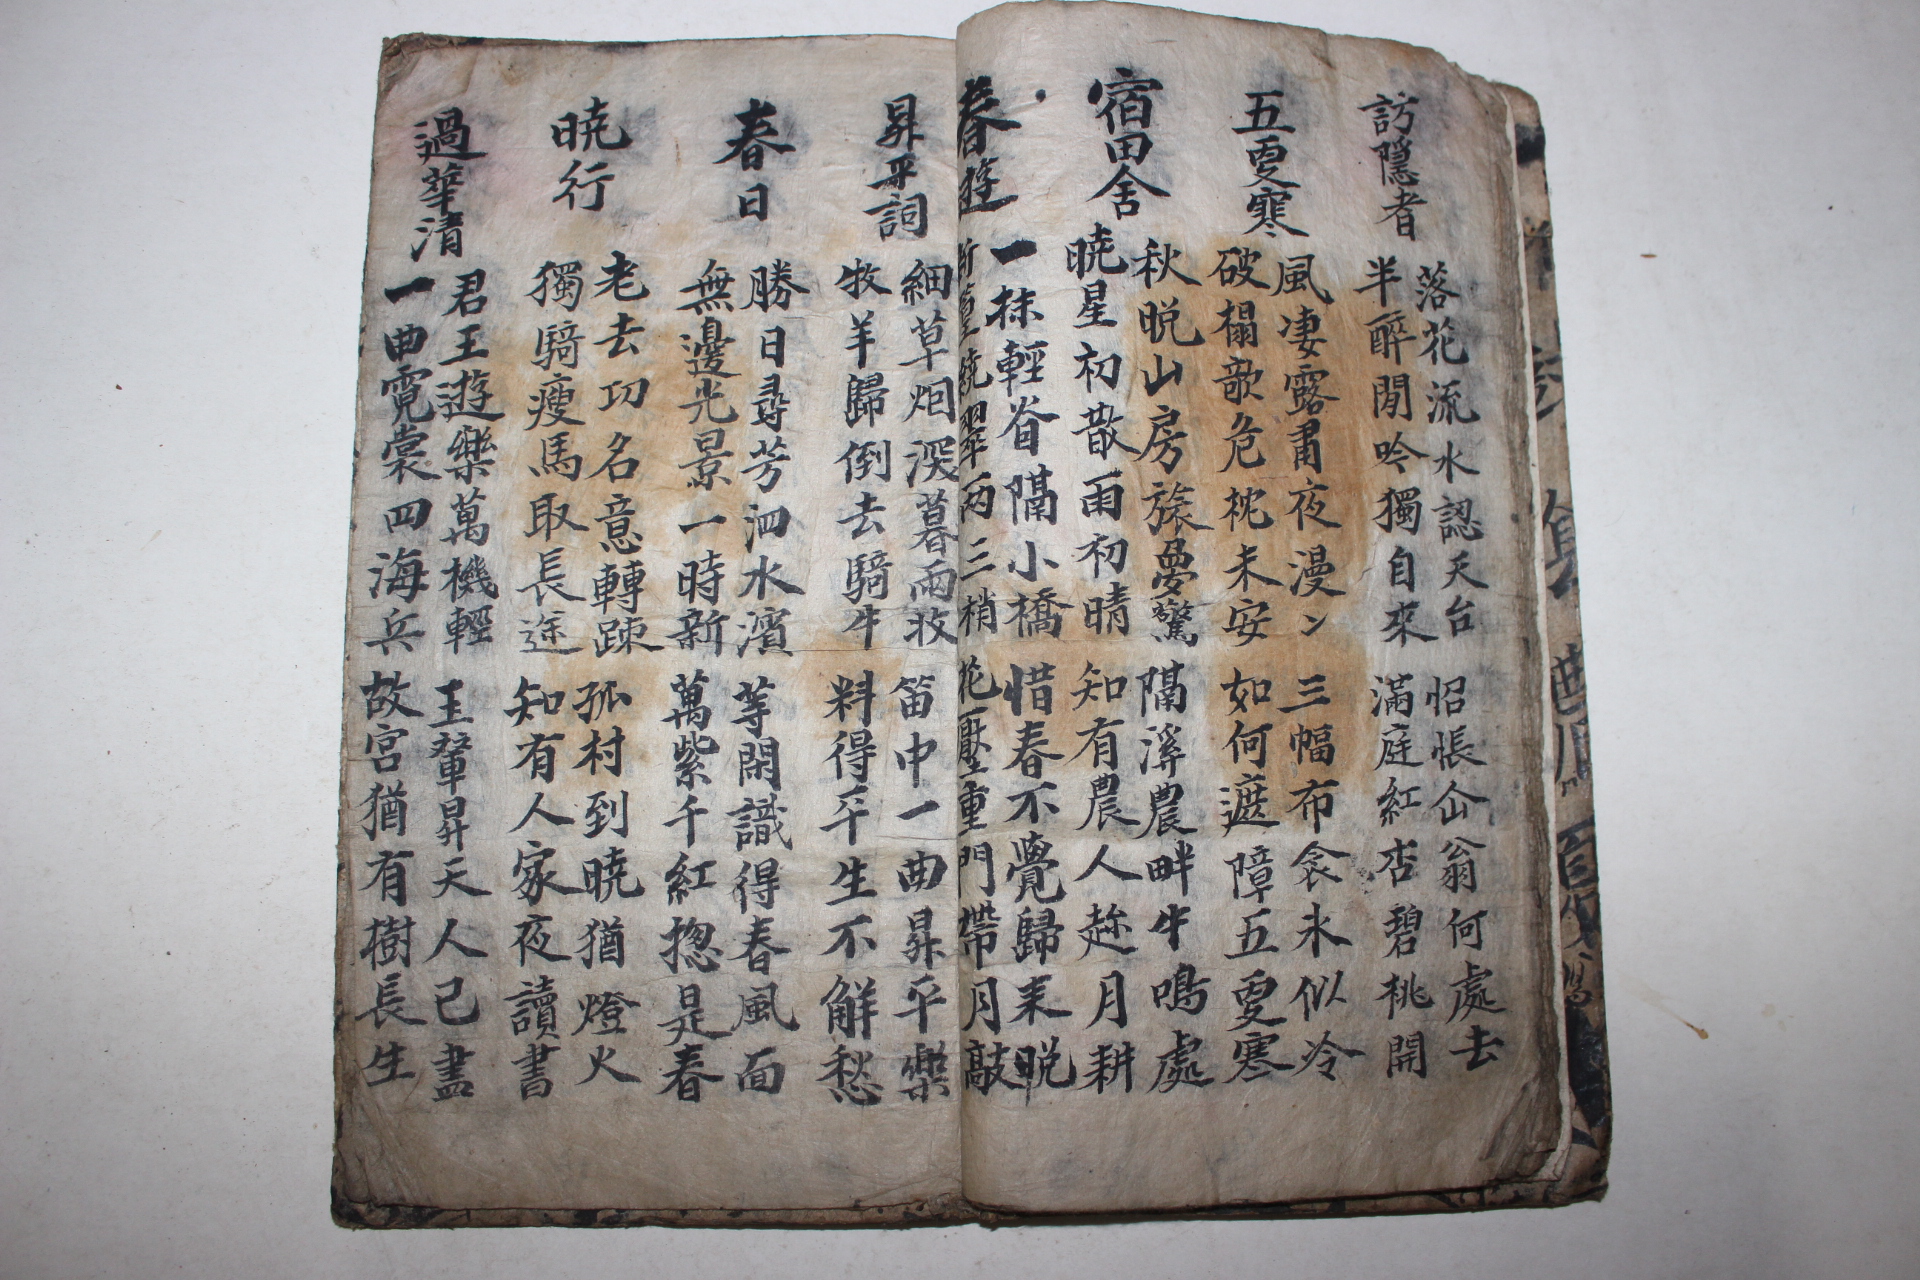 訪隱者
落花流水認天台 怊悵仚翁何處去
半醉閒吟獨自來 滿庭紅杏碧桃開
五更寒
風凄露肅夜漫ン 三幅布衾氷似冷
破榻欹危枕未安 如何遮障五更寒
宿田舍
秋晩山房旅夢驚 隔溪農畔牛鳴處
曉星初散雨初晴 知有農人趂月耕
春遊
一抹輕 隔小橋 惜春不覺歸来晩
翠兩三梢 花壓重門帶月敲
昇平詞
細草烟深暮雨收 笛中一曲昇平樂
牧羊歸倒去騎牛 料得平生不解愁
春日
勝日尋芳泗水濱 等閑識得春風面
無邊光景一時新 萬紫千紅揔是春
曉行
老去功名意轉踈 孤村到曉猶燈火
獨騎瘦馬取長途 知有人家夜讀書
過華清
君王遊樂萬機輕 玉輦昇天人已盡
一曲霓裳四海兵 故宮猶有樹長生